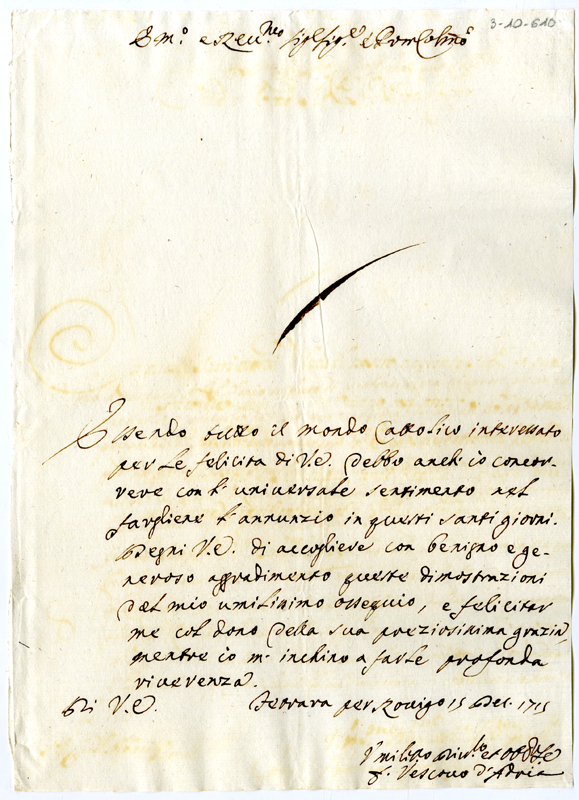 3-10-610
Em.º e Rev.mo Sig.r Sig.r e Pron Colmo
Essendo tutto il mondo Cattolico interessato
per le felicita di V.E. debbo anch' io concor-
rere con l' universale sentimento nel
fargliene l' annunzio in questi santi giorni.
Degni V.E. di accogliere con benigno e ge-
neroso aggradimento queste dimostrazioni
del mio umilissimo ossequio, e felicitar
me col dono della sua preziosissima grazia,
mentre io m' inchino a farle profonda
riverenza.
Di V.E. Ferrara per Rovigo 15 Dec. 1715
Vmiliss.o
F. Vescovo d'Adria